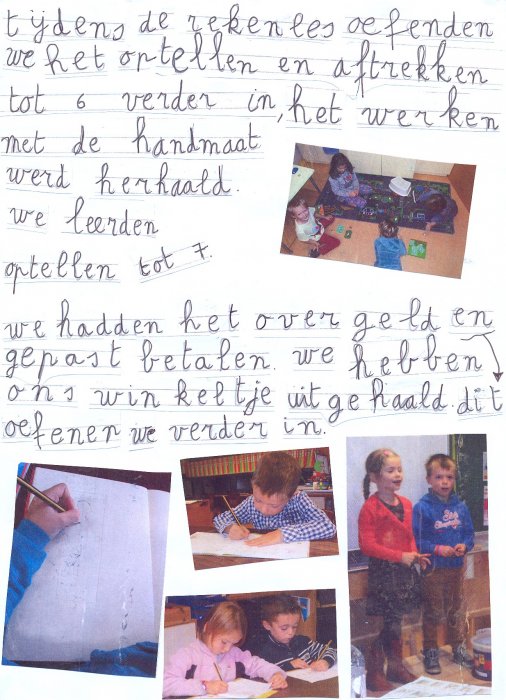 tijdens de rekenles oefenden
we het optellen en aftrekken
tot 6 verder in, het werken
met de handmaat
werd herhaald.
we leerden
optellen tot 7.
we hadden het over geld en
gepast betalen. we hebben
ons winkeltje uitgehaald. dit
oefenen we verder in.